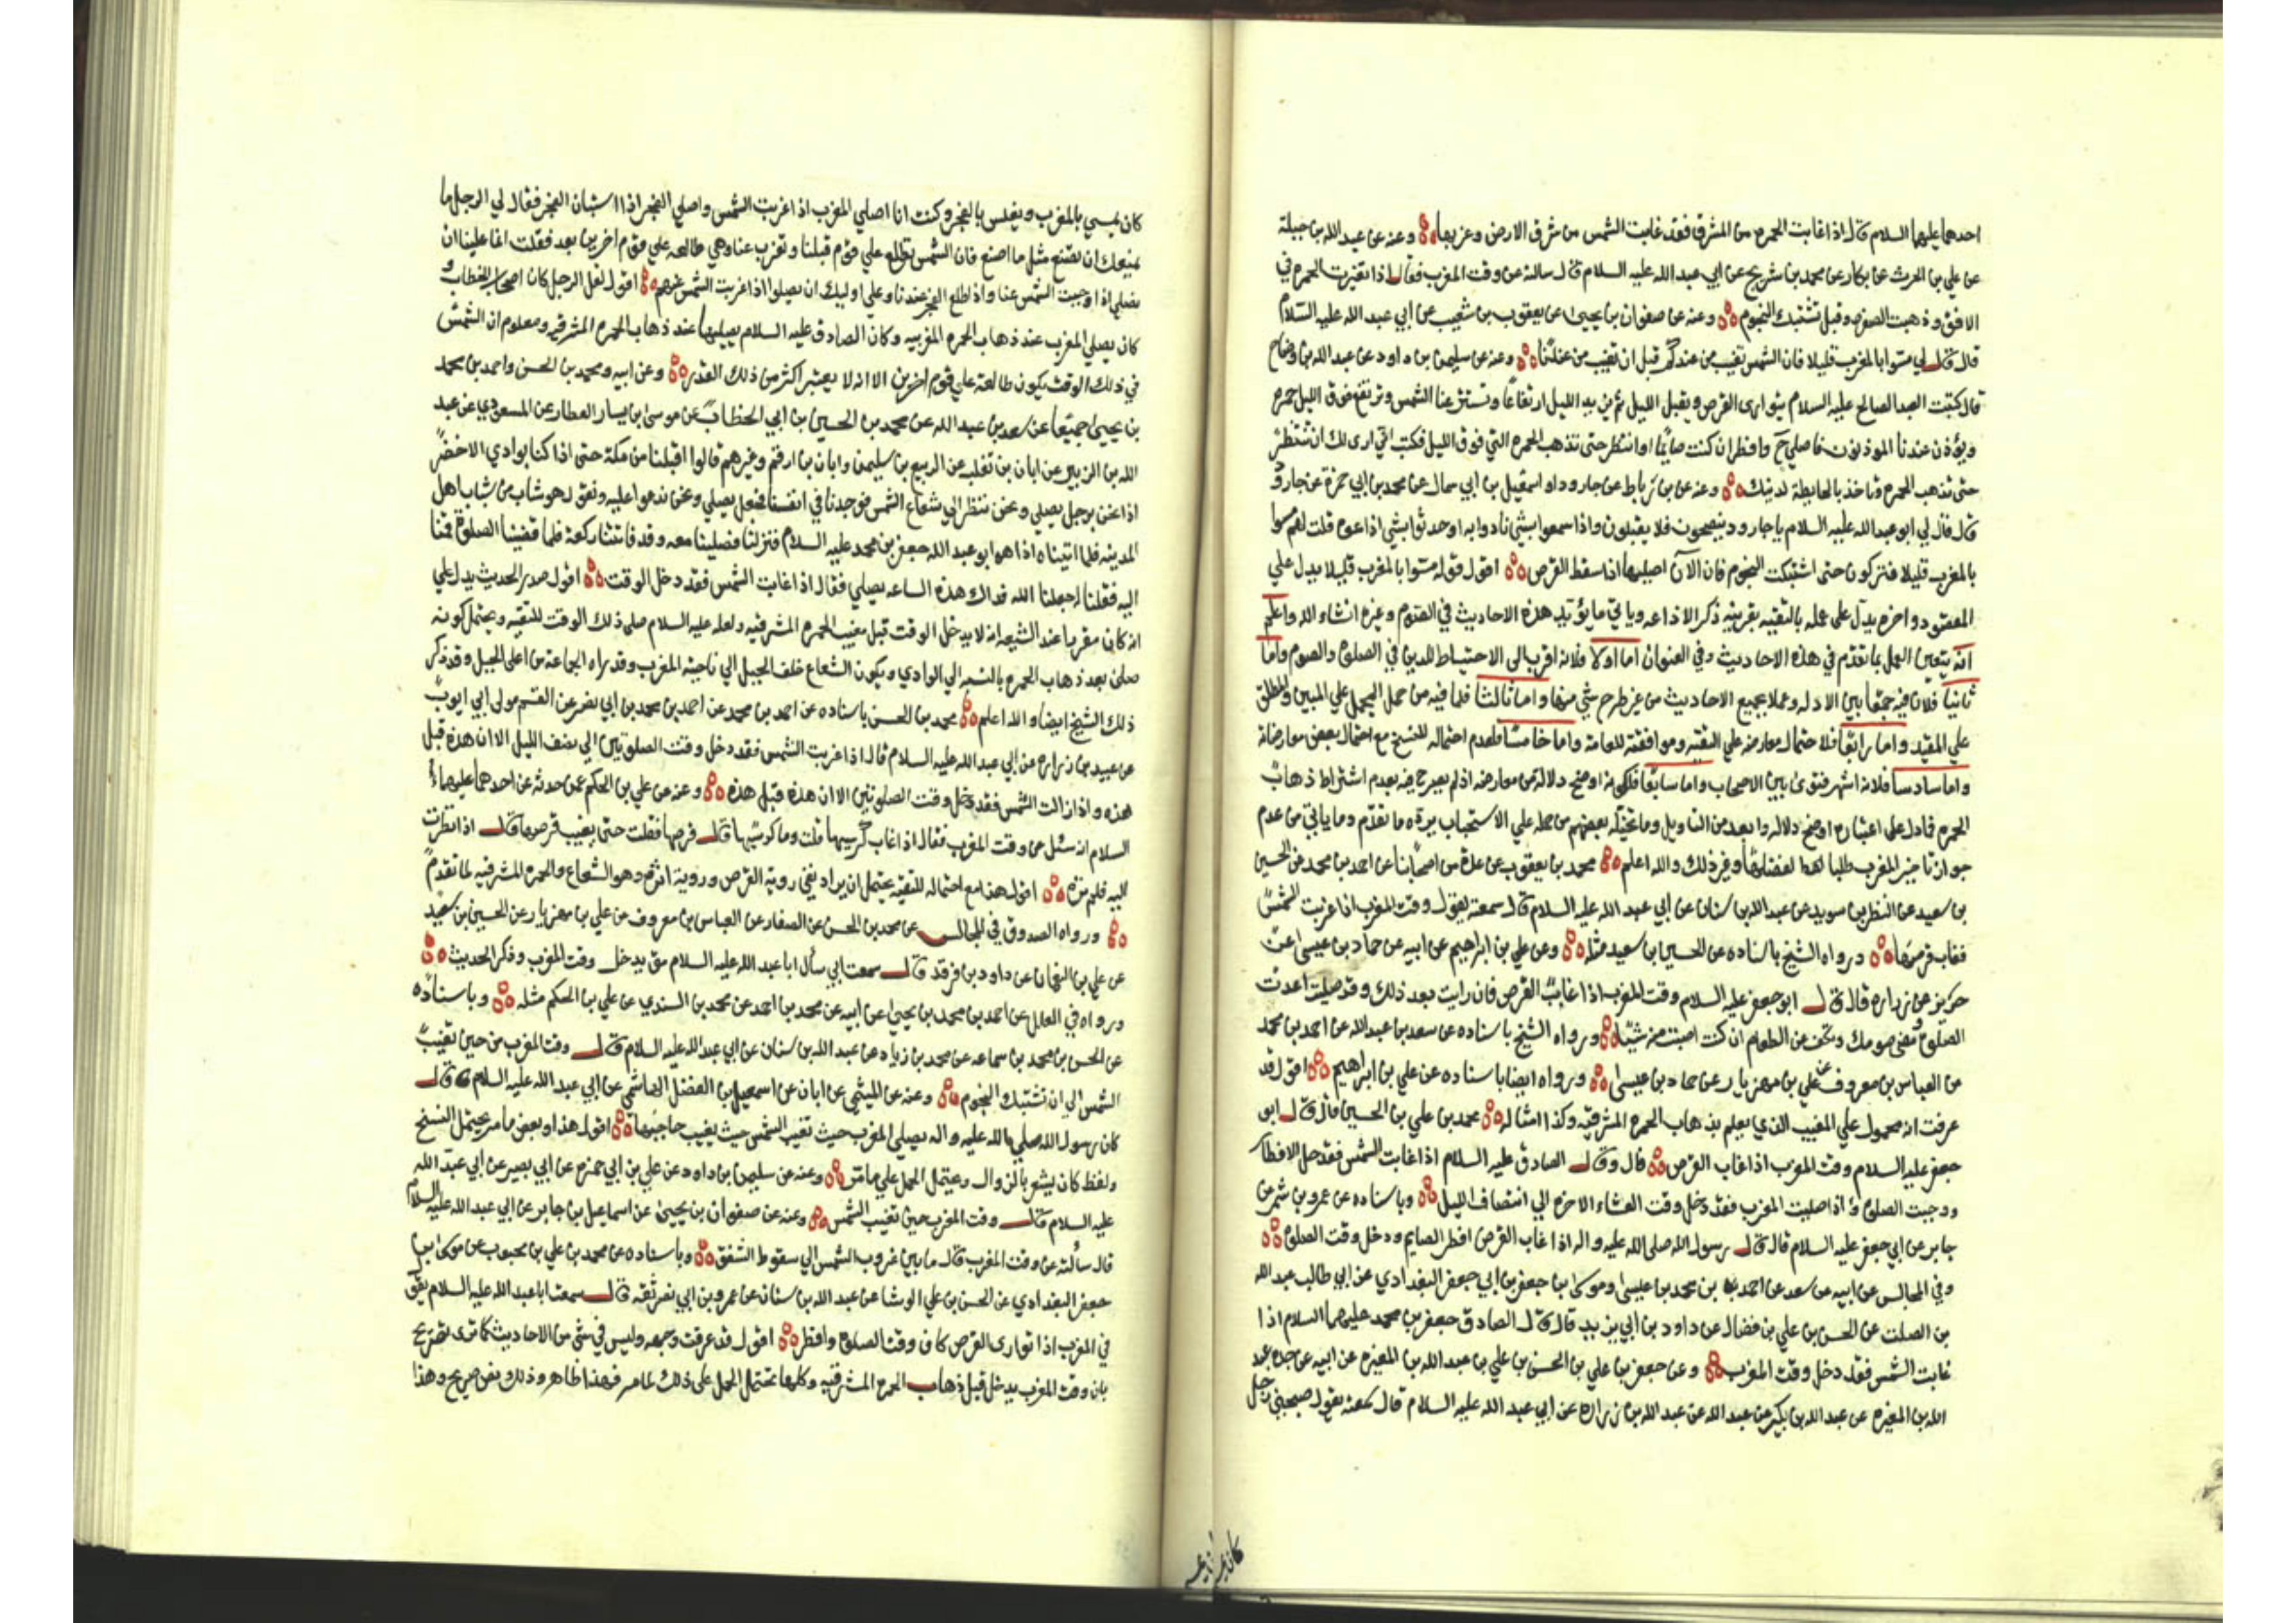 احدهما عليهما السلام قال اذا غابت الحمرة من المشرق فقد غابت الشمس من شرق الارض وغربها وعنه عن عبد الله بن جبلة
عن علي بن الحرث عن بكار عن محمد بن شريح عن ابي عبد الله عليه السلام قال سالته عن وقت المغرب فقال اذا تغيرت الحمرة في
الافق وذهبت الصفرة وقبل تشتبك النجوم وعنه عن صفوان بن يحيى عن يعقوب بن شعيب عن ابي عبد الله عليه السلام
قال قال لي مسوا بالمغرب قليلا فان الشمس تغيب من عندكم قبل ان تغيب من عندنا وعنه عن سليمن بن داود عن عبد الله بن وضاح
قال كتبت العبد الصالح عليه السلام يتوارى القرص ويقبل الليل ثم يزيد الليل ارتفاعا وتستتر عنا الشمس وترتفع فوق الليل حمرة
ويؤذن عندنا الموذنون فاصلي ح وافطر ان كنت صايما او انتظر حتى تذهب الحمرة التي فوق الليل فكتب الي ارى لك ان تنتظر
حتى تذهب الحمرة وتاخذ بالحايطة لدينك وعنه عن بن رباط عن جارود او اسمعيل بن ابي سمال عن محمد بن ابي حمزة عن جارود
قال قال لي ابو عبد الله عليه السلام يا جارود ينصحون فلا يقبلون واذا سمعوا بشي نادوا به او حدثوا بشي اذاعوه قلت لهم مسوا
بالمغرب قليلا فتركوها حتى اشتبكت النجوم فان الآن اصليها اذا سقط القرص اقول قوله مسوا بالمغرب قليلا يدل على
المقصود واخره يدل على عمله بالتقيه بقرينة ذكر الاذاعه وياتي ما يؤيد هذه الاحاديث في الصوم وغيره انشاء الله واعلم
انه يتعين العمل بما تقدم في هذه الاحاديث وفي العنوان اما اولا فلانه اقرب الى الاحتياط للدين في الصلوة والصوم واما
ثانيا فلان فيه جمعا بين الادله وعملا بجميع الاحاديث من غير طرح شي منها واما ثالثا فلما فيه من حمل المجمل على المبين والمطلق
على المقيد واما رابعا فلاحتمال معارضه على التقيه وموافقته للعامة واما خامسا فلعدم احتماله للنسخ مع احتمال بعض معارضاته
واما سادسا فلانه اشهر فتوى بين الاصحاب واما سابعا فلكونه اوضح دلالة من معارضه اذ لم يصرح فيه بعدم اشتراط ذهاب
الحمرة فما دل على اعتباره اوضح دلاله وابعد من التاويل وما تخيله بعضهم من حمله على الاستحباب يرده ما تقدم وما ياتي من عدم
جواز تاخير المغرب طلبا لفضلها وغير ذلك والله اعلم محمد بن يعقوب عن عدة من اصحابنا عن احمد بن محمد عن الحسين
بن سعيد عن النضر بن سويد عن عبد الله بن سنان عن ابي عبد الله عليه السلام قال سمعته يقول وقت المغرب اذا غربت الشمس
فغاب قرصها ورواه الشيخ باسناده عن الحسين بن سعيد مثله وعن علي بن ابراهيم عن ابيه عن حماد بن عيسى عن
حريز عن زراره قال قال ابو جعفر عليه السلام وقت المغرب اذا غاب القرص فان رايت بعد ذلك وقد صليت اعدت
الصلوة ومضى صومك وتكف عن الطعام ان كنت اصبت منه شيئا ورواه الشيخ باسناده عن سعد بن عبد الله عن احمد بن محمد
عن العباس بن معروف عن علي بن مهزيار عن حماد بن عيسى ورواه ايضا باسناده عن علي بن ابراهيم اقول قد
عرفت انه محمول على المغيب الذي يعلم بذهاب الحمرة المشرقيه وكذا امثاله محمد بن علي بن الحسين قال قال ابو
جعفر عليه السلام وقت المغرب اذا غاب القرص قال وقال الصادق عليه السلام اذا غابت الشمس فقد حل الافطار
ووجبت الصلوة واذا صليت المغرب فقد دخل وقت العشاء الاخرة الى انتصاف الليل وباسناده عن عمرو بن شمر عن
جابر عن ابي جعفر عليه السلام قال قال رسول الله صلى الله عليه واله اذا غاب القرص افطر الصايم ودخل وقت الصلوة
وفي المجالس عن ابيه عن سعد عن احمد بن محمد بن عيسى وموسى بن جعفر بن ابي جعفر البغدادي عن ابي طالب عبد الله
بن الصلت عن الحسن بن علي بن فضال عن داود بن ابي يزيد قال قال الصادق جعفر بن محمد عليهما السلام اذا
غابت الشمس فقد دخل وقت المغرب وعن جعفر بن علي بن الحسن بن علي بن عبد الله بن المغيرة عن ابيه عن جده عبد
الله بن المغيره عن عبد الله بن بكير عن عبد الله عن عبد الله بن زراره عن ابي عبد الله عليه السلام قال سمعته يقول صحبني رجل
كان يمسي بالمغرب ويغلس بالفجر وكنت انا اصلي المغرب اذا غربت الشمس واصلي الفجر اذا استبان الفجر فقال لي الرجل ما
يمنعك ان تصنع مثل ما اصنع فان الشمس تطلع على قوم قبلنا وتغرب عنا وهي طالعه على قوم اخرين بعد فقلت انما علينا ان
نصلي اذا وجبت الشمس عنا واذا طلع الفجر عندنا وعلى اوليك ان يصلوا اذا غربت الشمس عنهم اقول لعل الرجل كان اصحاب الخطاب و
كان يصلي المغرب عند ذهاب الحمرة المغربيه وكان الصادق عليه السلام يصليها عند ذهاب الحمرة المشرقيه ومعلوم ان الشمس
في ذلك الوقت يكون طالعة على قوم اخرين الا انه لا يعتبر اكثر من ذلك القدر وعن ابيه ومحمد بن الحسن واحمد بن محمد
بن يحيى جميعا عن سعد بن عبد الله عن محمد بن الحسين بن ابي الخطاب عن موسى بن يسار العطار عن المسعودي عن عبد
الله بن الزبير عن ابان بن تغلب عن الربيع بن سليمن وابان بن ارقم وغيرهم قالوا اقبلنا من مكة حتى اذا كنا بوادي الاخضر
اذا نحن برجل يصلي ونحن ننظر الى شعاع الشمس فوجدنا في انفسنا فجعل يصلي ونحن ندعوا عليه ونقول هو شاب من شباب اهل
المدينه فلما اتيناه اذا هو ابو عبد الله جعفر بن محمد عليه السلام فنزلنا فصلينا معه وقد فاتتنا ركعة فلما قضينا الصلوة قمنا
اليه فقلنا جعلنا الله فداك هذه الساعه تصلي فقال اذا غابت الشمس فقد دخل الوقت اقول صدر الحديث يدل على
انه كان مقررا عند الشيعه انه لا يدخل الوقت قبل مغيب الحمرة المشرقيه ولعله عليه السلام صلى ذلك الوقت للتقيه ويحتمل كونه
صلى بعد ذهاب الحمرة بالنسبه الى الوادي ويكون الشعاع خلف الجبل الى ناحية المغرب وقد راه الجماعة من اعلى الجبل وقد ذكر
ذلك الشيخ ايضا والله اعلم محمد بن الحسن باسناده عن احمد بن محمد عن احمد بن محمد بن ابي نصر عن القسم مولى ابي ايوب
عن عبيد بن زراره عن ابي عبد الله عليه السلام قال اذا غربت الشمس فقد دخل وقت الصلوتين الى نصف الليل الا ان هذه قبل
هذه واذا زالت الشمس فقد دخل وقت الصلوتين الا ان هذه قبل هذه وعنه عن علي بن الحكم عمن حدثه عن احدهما عليهما
السلام انه سئل عن وقت المغرب فقال اذا غاب كرسيها قلت وما كرسيها قال قرصها فقلت حتى يغيب قرصها قال اذا نظرت
اليه فلم تره اقول هذا مع احتماله للتقيه يحتمل ان يراد نفي روية القرص وروية اثره وهو الشعاع والحمرة المشرقيه لما تقدم
ورواه الصدوق في المجالس عن محمد بن الحسن عن الصفار عن العباس بن معروف عن علي بن مهزيار عن الحسين بن سعيد
عن علي بن النعمان عن داود بن فرقد قال سمعت ابي سأل ابا عبد الله عليه السلام متى يدخل وقت المغرب وذكر الحديث
ورواه في العلل عن احمد بن محمد بن يحيى عن ابيه عن محمد بن احمد عن محمد بن السندي عن علي بن الحكم مثله وباسناده
عن الحسن بن محمد بن سماعه عن محمد بن زياد عن عبد الله بن سنان عن ابي عبد الله عليه السلام قال وقت المغرب من حين تغيب
الشمس الى ان تشتبك النجوم وعنه عن الميثمي عن ابان عن اسمعيل بن الفضل الهاشمي عن ابي عبد الله عليه السلام قال
كان رسول الله صلى الله عليه واله يصلي المغرب حيث تغيب الشمس حيث يغيب حاجبها اقول هذا وبعض ما مر يحتمل النسخ
ولفظ كان يشعر بالزوال ويحتمل الحمل على ما مر وعنه عن سليمن بن داود عن علي بن ابي حمزه عن ابي بصير عن ابي عبد الله
عليه السلام قال وقت المغرب حين تغيب الشمس وعنه عن صفوان بن يحيى عن اسماعيل بن جابر عن ابي عبد الله عليه السلام
قال سألته عن وقت المغرب قال ما بين غروب الشمس الى سقوط الشفق وباسناده عن محمد بن علي بن محبوب عن موسى بن
جعفر البغدادي عن الحسن بن علي الوشا عن عبد الله بن سنان عن عمرو بن ابي نصر قال سمعت ابا عبد الله عليه السلام يقول
في المغرب اذا توارى القرص كان وقت الصلوة وافطر اقول قد عرفت وجهه وليس في شي من الاحاديث كما ترى تصريح
بان وقت المغرب يدخل قبل ذهاب الحمرة المشرقيه وكلها تحتمل الحمل على ذلك لما مر فهذا ظاهر وذلك نص صريح وهذا